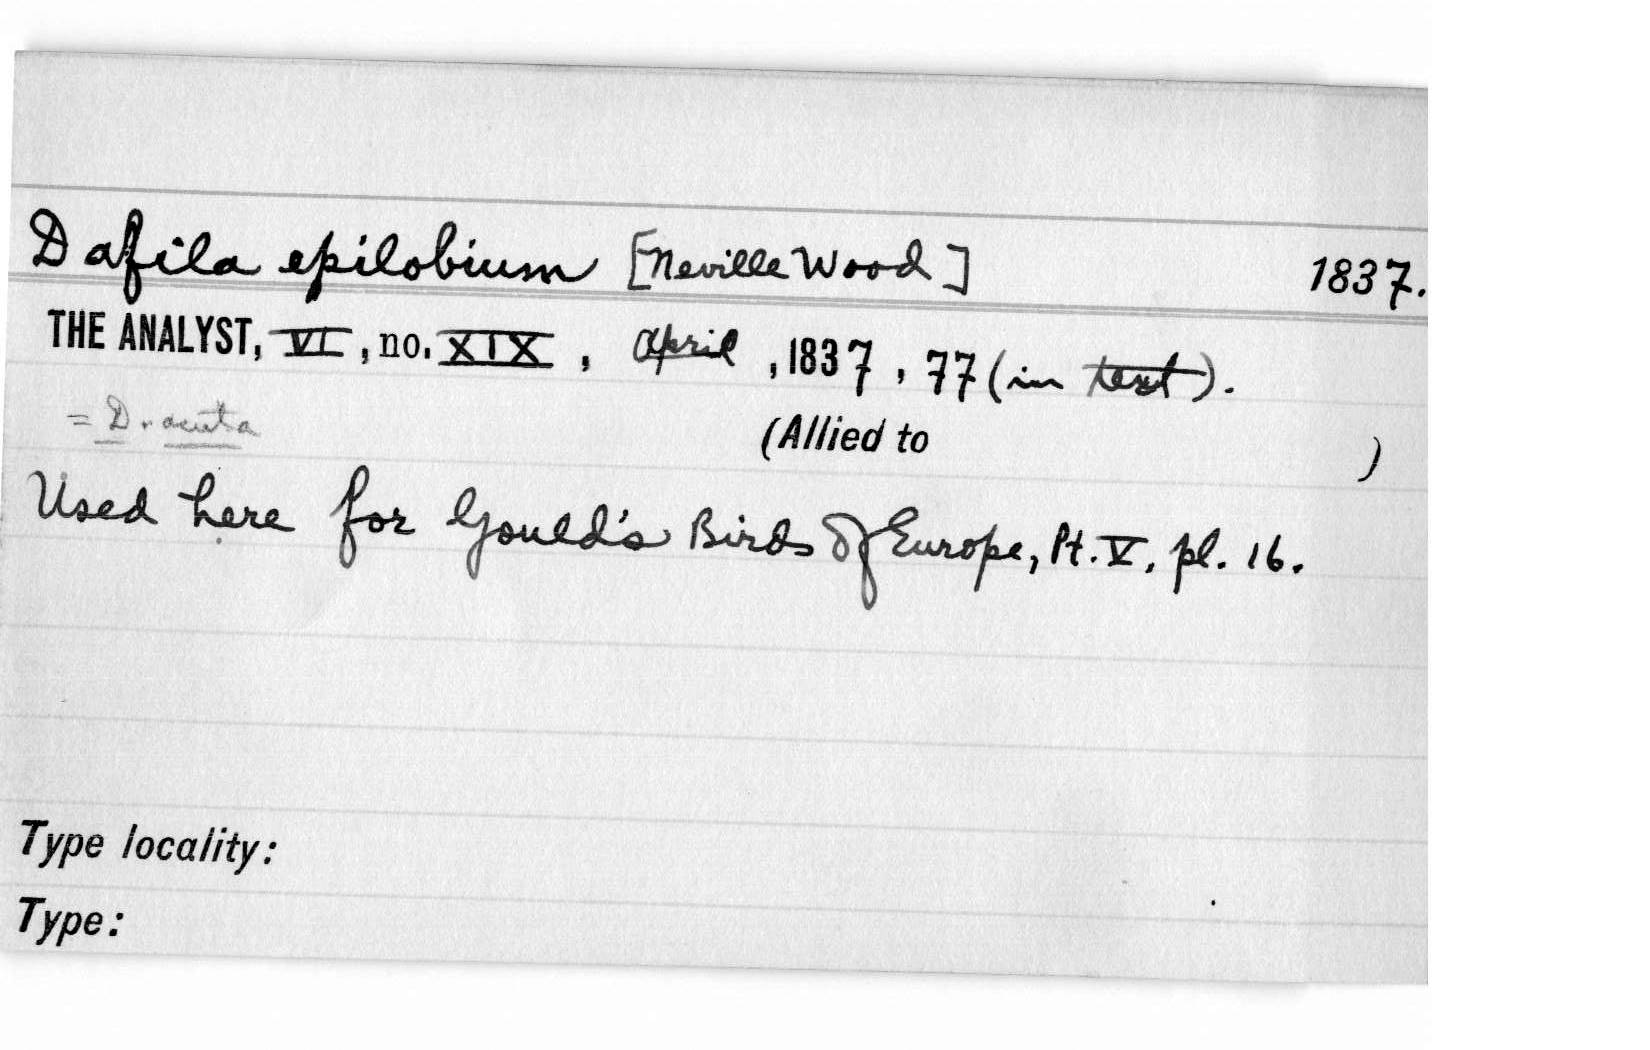 Dafila epilobium [Neville Wood] 1837.
THE ANALYST, VI, no. XIX, April, 1837, 77 (in text).
= D. acuta
(Allied to )
Used here for Gould's Birds of Europe, Pt. V, pl. 16.
Type locality:
Type: